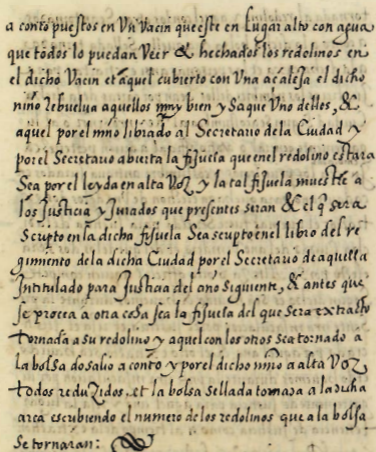 a conto puestos en Un Vacin que este en Lugar alto con agua
que todos lo puedan Veer & hechados los redolinos en
el dicho Vacin et aquel cubierto con Una el dicho
niño rebuelva aquellos muy bien y Saque Uno dellos, &
aquel por el mño librado al Secretario dela Ciudad y
por el Secretario abierta la fijuela que enel redolino estara
Sea por el leyda en alta Voz y la tal fijuela muestre a
los Justicia y Jurados que presentes seran & el q sera
Scripto en la dicha fijuela Sea scripto en el libro del re
gimiento dela dicha Ciudad por el Secretario de aquella
Intitulado para Justicia del año siguiente, & antes que
se procea a otra cosa sea la fijuela del que sera extracto
tornada a su redolino y aquel con los otros sea tornado a
la bolsa do salio a conto y por el dicho mño a alta Voz
todos reduzidos. et la bolsa sellada tornada a la dicha
arca escribiendo el numero de los redolinos que a la bolsa
se tornaran: